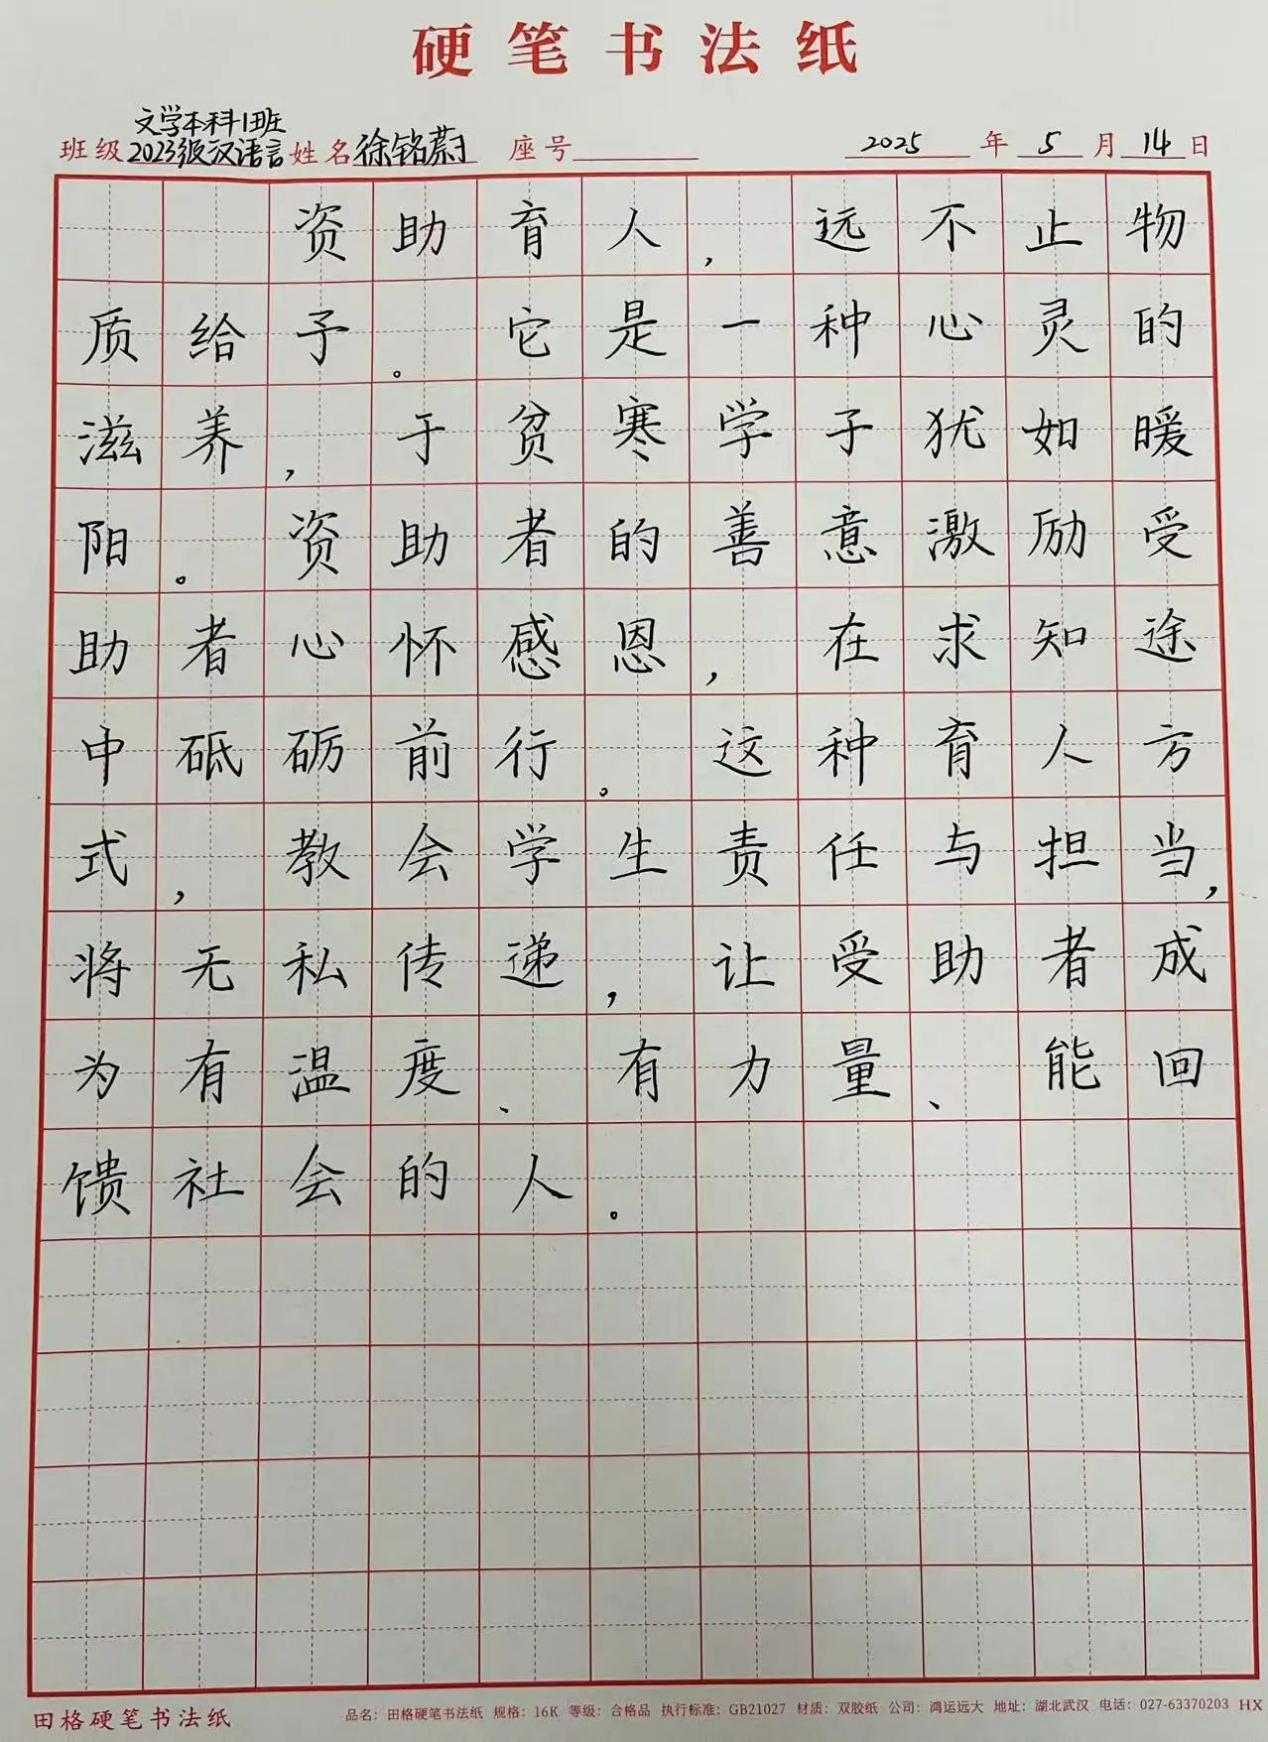 硬笔书法纸
文学本科1班
班级2023级汉语言 姓名徐铭蔚 座号 2025年5月14日
资助育人，远不止物
质给予。它是一种心灵的
滋养，于贫寒学子犹如暖
阳。资助者的善意激励受
助者心怀感恩，在求知途
中砥砺前行。这种育人方
式，教会学生责任与担当，
将无私传递，让受助者成
为有温度、有力量、能回
馈社会的人。
田格硬笔书法纸 品名：田格硬笔书法纸 规格：16K 等级：合格品 执行标准：GB21027 材质：双胶纸 公司：鸿运远大 地址：湖北武汉 电话：027-63370203 HX